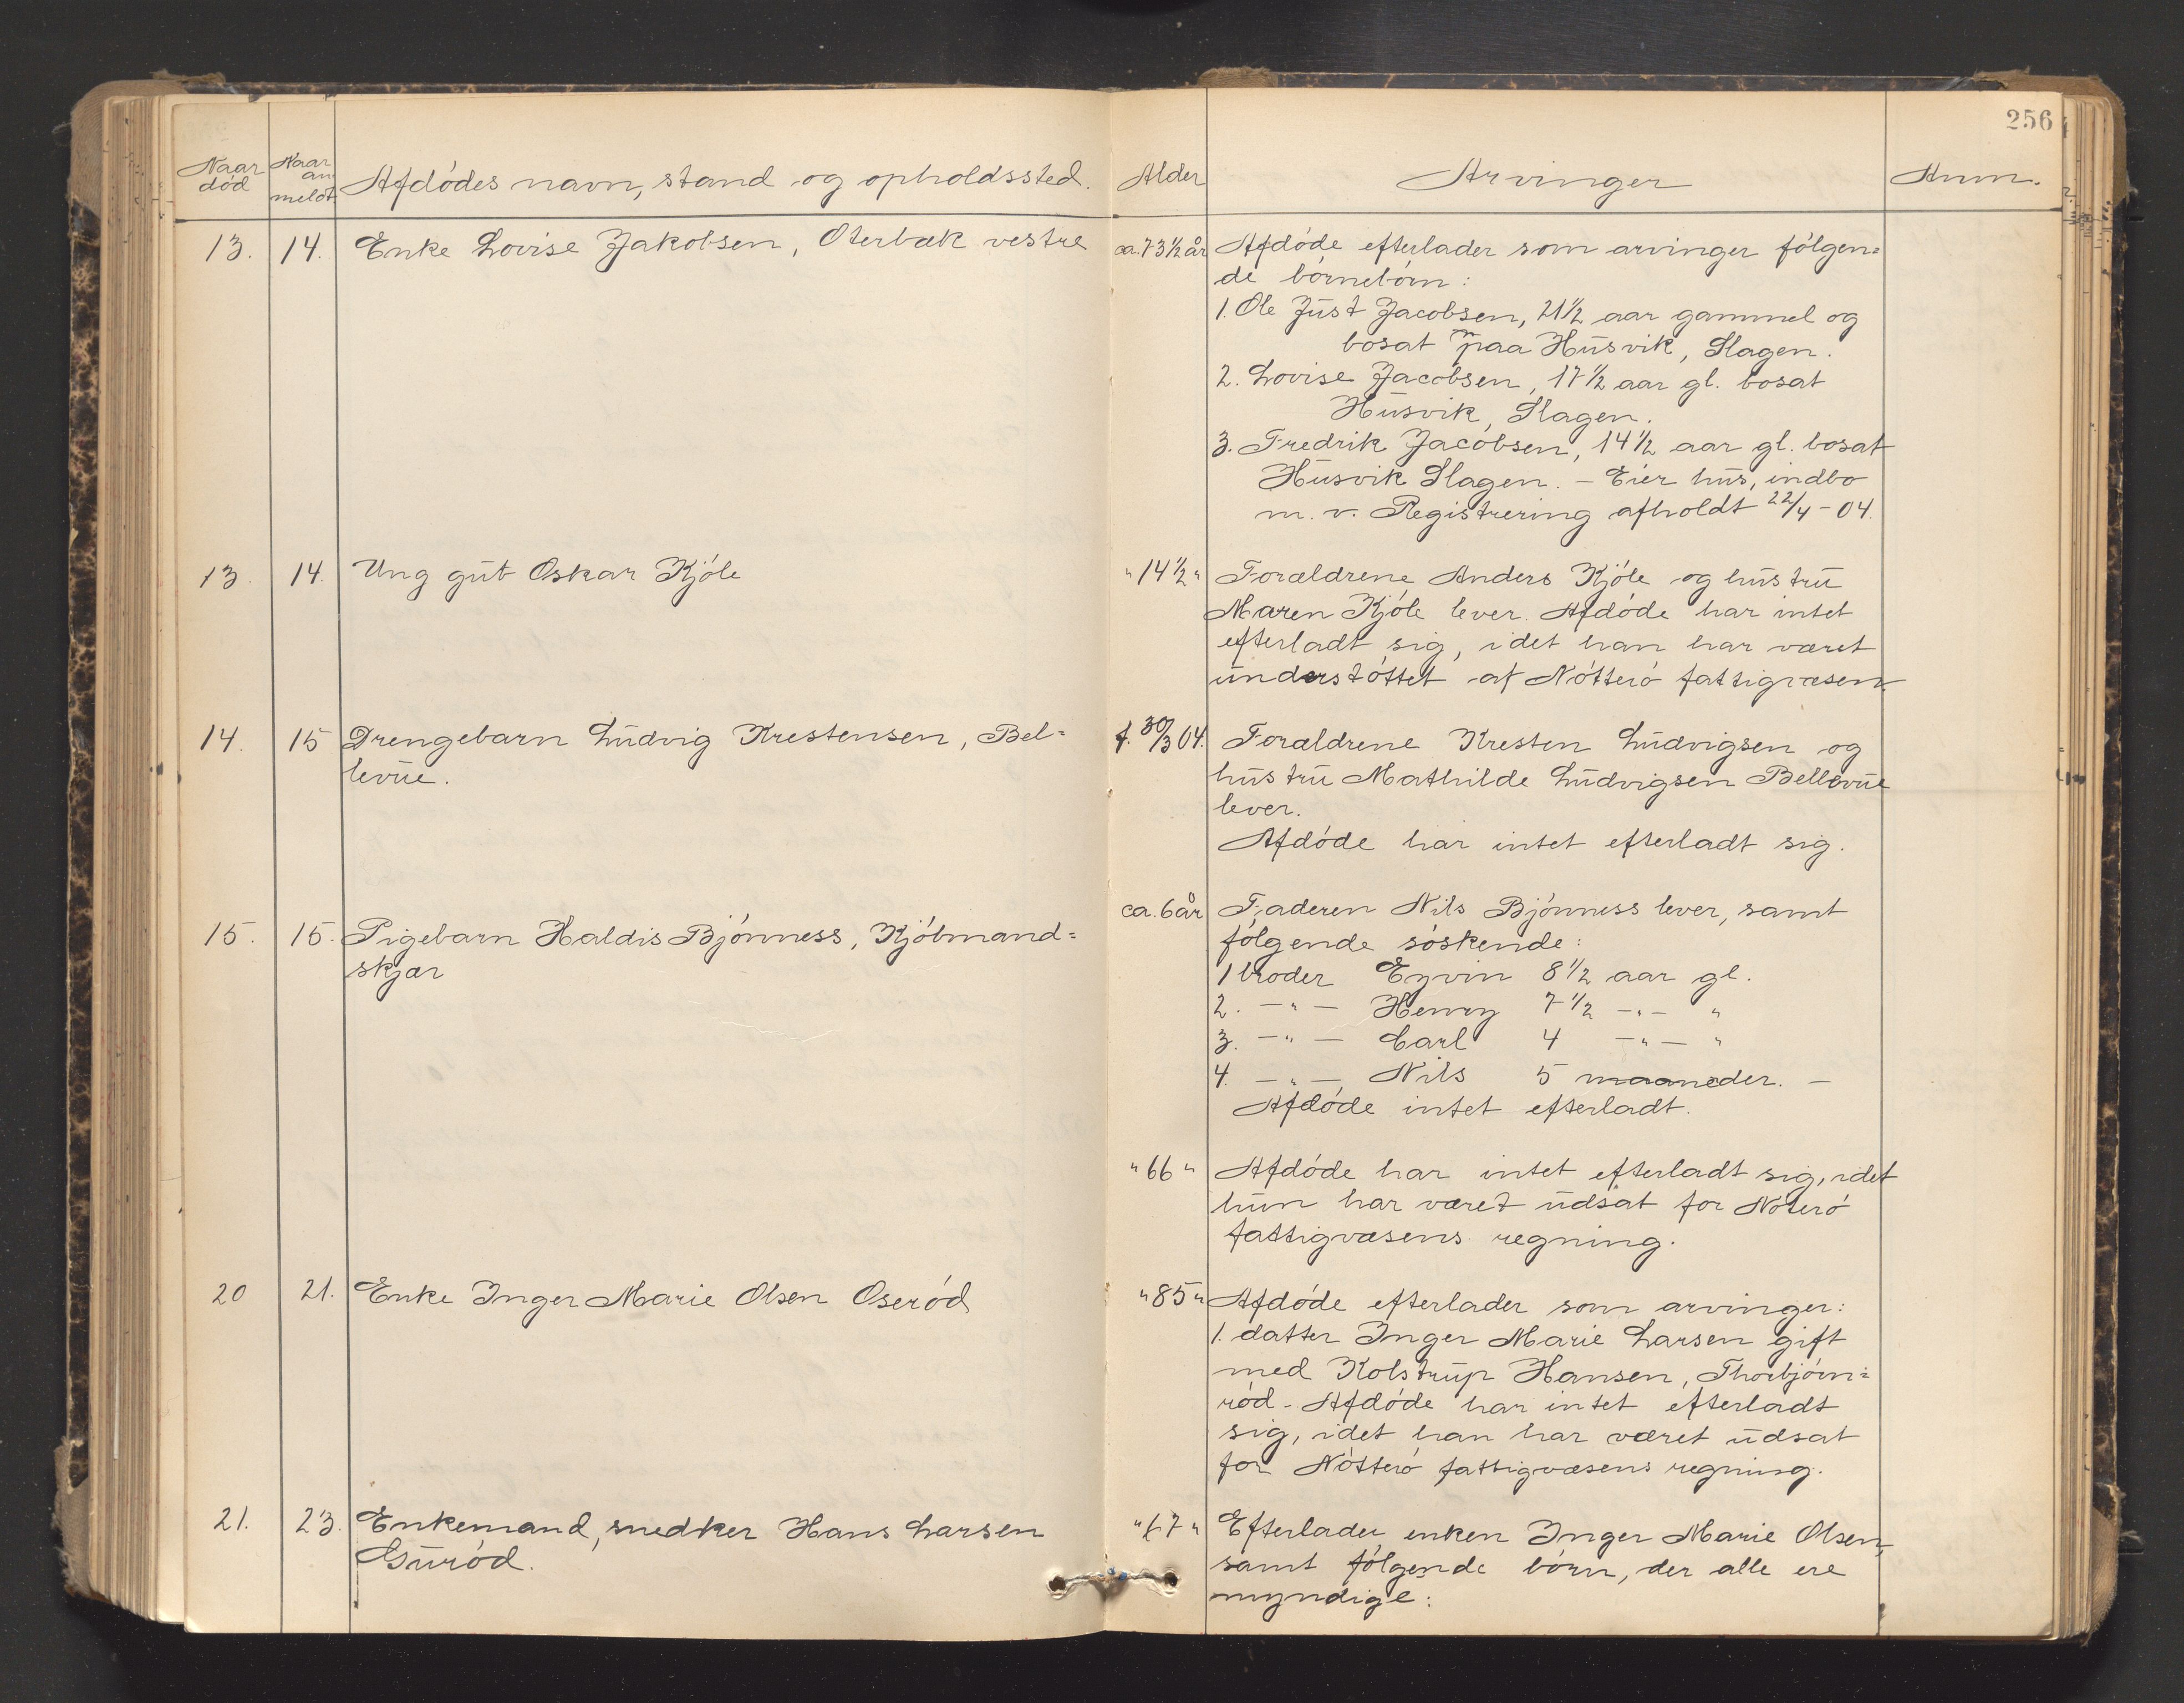 256
Naar død
Naar an meldt
Afdódes navn, stand og opholdssted.
Alder
Arvinger
Anm.
13. 14. Enke Lovise Jakobsen, Oterbæk vestre
ca. 73 1/2 år
Afdóde efterlader som arvinger fólgen=
de bórnebórn:
1. Ole Just Jacobsen, 21 1/2 aar gammel og
bosat paa Husvik, Slagen.
2. Lovise Jacobsen, 17 1/2 aar gl. bosat
Husvik, Slagen.
3. Fredrik Jacobsen, 14 1/2 aar gl. bosat
Husvik Slagen. - Eier hus, indbo
m. v. Registrering afholdt 22/4 - 04.
13. 14. Ung gut Oskar Kjóle
" 14 1/2 "
Forældrene Anders Kjóle og hustru
Maren Kjóle lever. Afdóde har intet
efterladt sig, idet han har været
understóttet af Nótteró fattigvæsen.
14. 15 Drengebarn Ludvig Krestensen, Bel=
levue.
f. 30/3 04.
Forældrene Kresten Ludvigsen og
hustru Mathilde Ludvigsen Bellevue
lever.
Afdóde har intet efterladt sig.
15. 15. Pigebarn Haldis Bjónness, Kjóbmand=
skjær
ca. 6 år
Faderen Nils Bjónness lever, samt
fólgende sóskende:
1 broder Eyvin 8 1/2 aar gl.
2. - " - Henry 7 1/2 - " - "
3. - " - Carl 4 - " - "
4. - " - Nils 5 maaneder. -
Afdóde intet efterladt.
" 66 "
Afdóde har intet efterladt sig, idet
hun har været udsat for Nóteró
fattigvæsens regning.
20 21. Enke Inger Marie Olsen Oseród
" 85 "
Afdóde efterlader som arvinger:
1. datter Inger Marie Larsen gift
med Kolstrup Hansen, Thorbjórn=
ród - Afdóde har intet efterladt
sig, idet han har været udsat
for Nótteró fattigvæsens regning.
21. 23. Enkemand, snedker Hans Larsen
Guród.
Efterlader enken Inger Marie Olsen,
samt fólgende bórn, der alle ere
myndige: